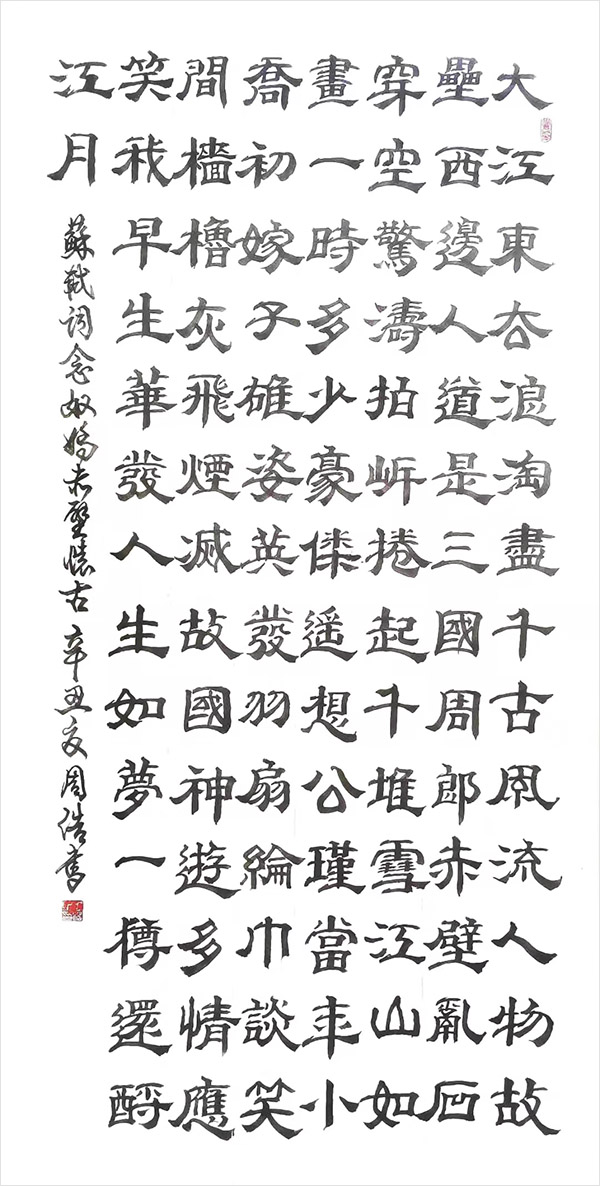 大江東去浪淘盡千古風流人物故
壘西邊人道是三國周郎赤壁亂石
穿空驚濤拍岸捲起千堆雪江山如
畫一時多少豪傑遙想公瑾當年小
喬初嫁子雄姿英發羽扇綸巾談笑
間檣櫓灰飛煙滅故國神遊多情應
笑我早生華發人生如夢一樽還酹
江月
蘇軾詞念奴嬌赤壁懷古 辛丑夏周浩書